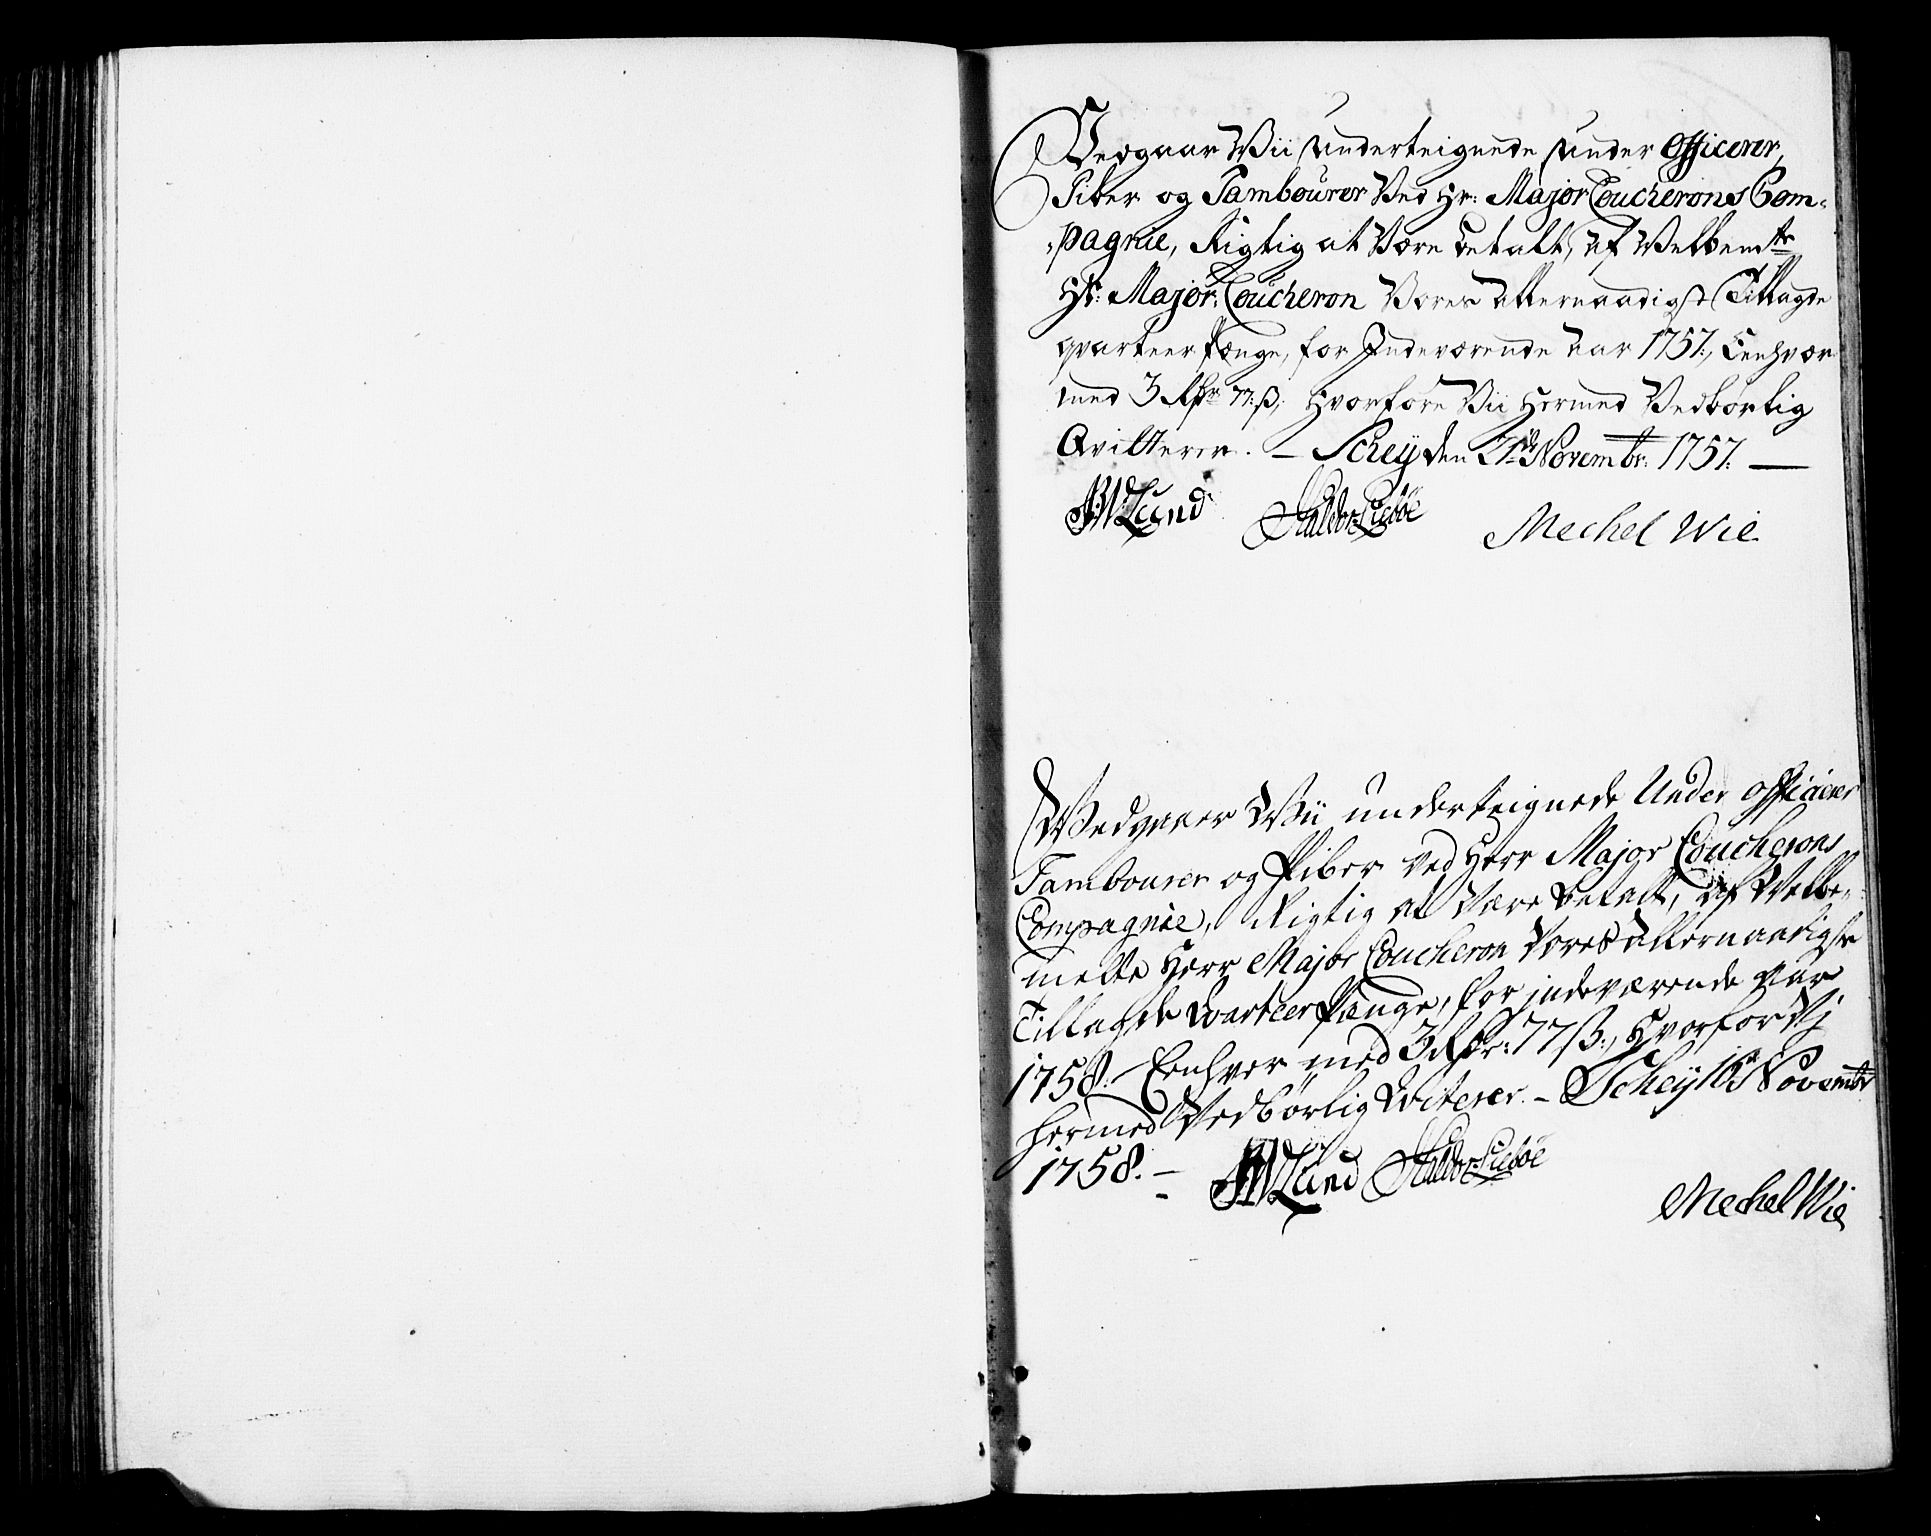 Vedgaar Wii underteignede under Officerer,
Piber og Tambourer Ved Hr: Major Coucherons Com-
-pagnie, Rigtig at Være betalt, af Welbemte
Hr: Major: Coucheron Vores allernaadigst Tillagde
qvarteer Penge, for Indeværende aar 1757., Eenhver
med 3 Rdr 77 ß, Hvorfore Vii Hermed Vedbørlig
Qvitterer. – Scheij den 21de Novembr: 1757. —
Lund Haldor Liebøe Mechel Wie
Vedgaaer Wii underteignede Under officerer
Tambourer og Piber ved Herr Major Coucherons
Compagnie, Rigtig at Være betalt, af Welbe-
melte Herr Major Coucheron Vores allernaadigst
Tillagde Qvarteer Penge, for indeværende aar
1758. Eenhver med 3 Rdr: 77 ß:, Hvorfor Vj
hermed Vedbørlig Qviterer. – Scheij 16 Novembr
1758. – Lund Haldor Liebøe
Mechel Wie